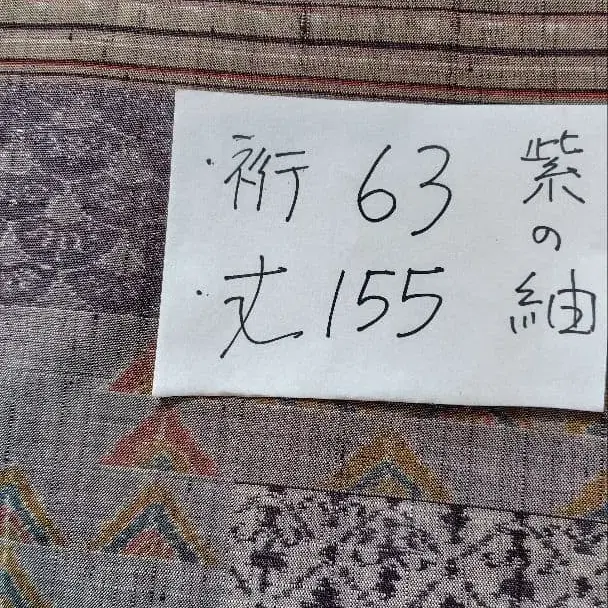 紫の紬
・裄 63
・丈 155